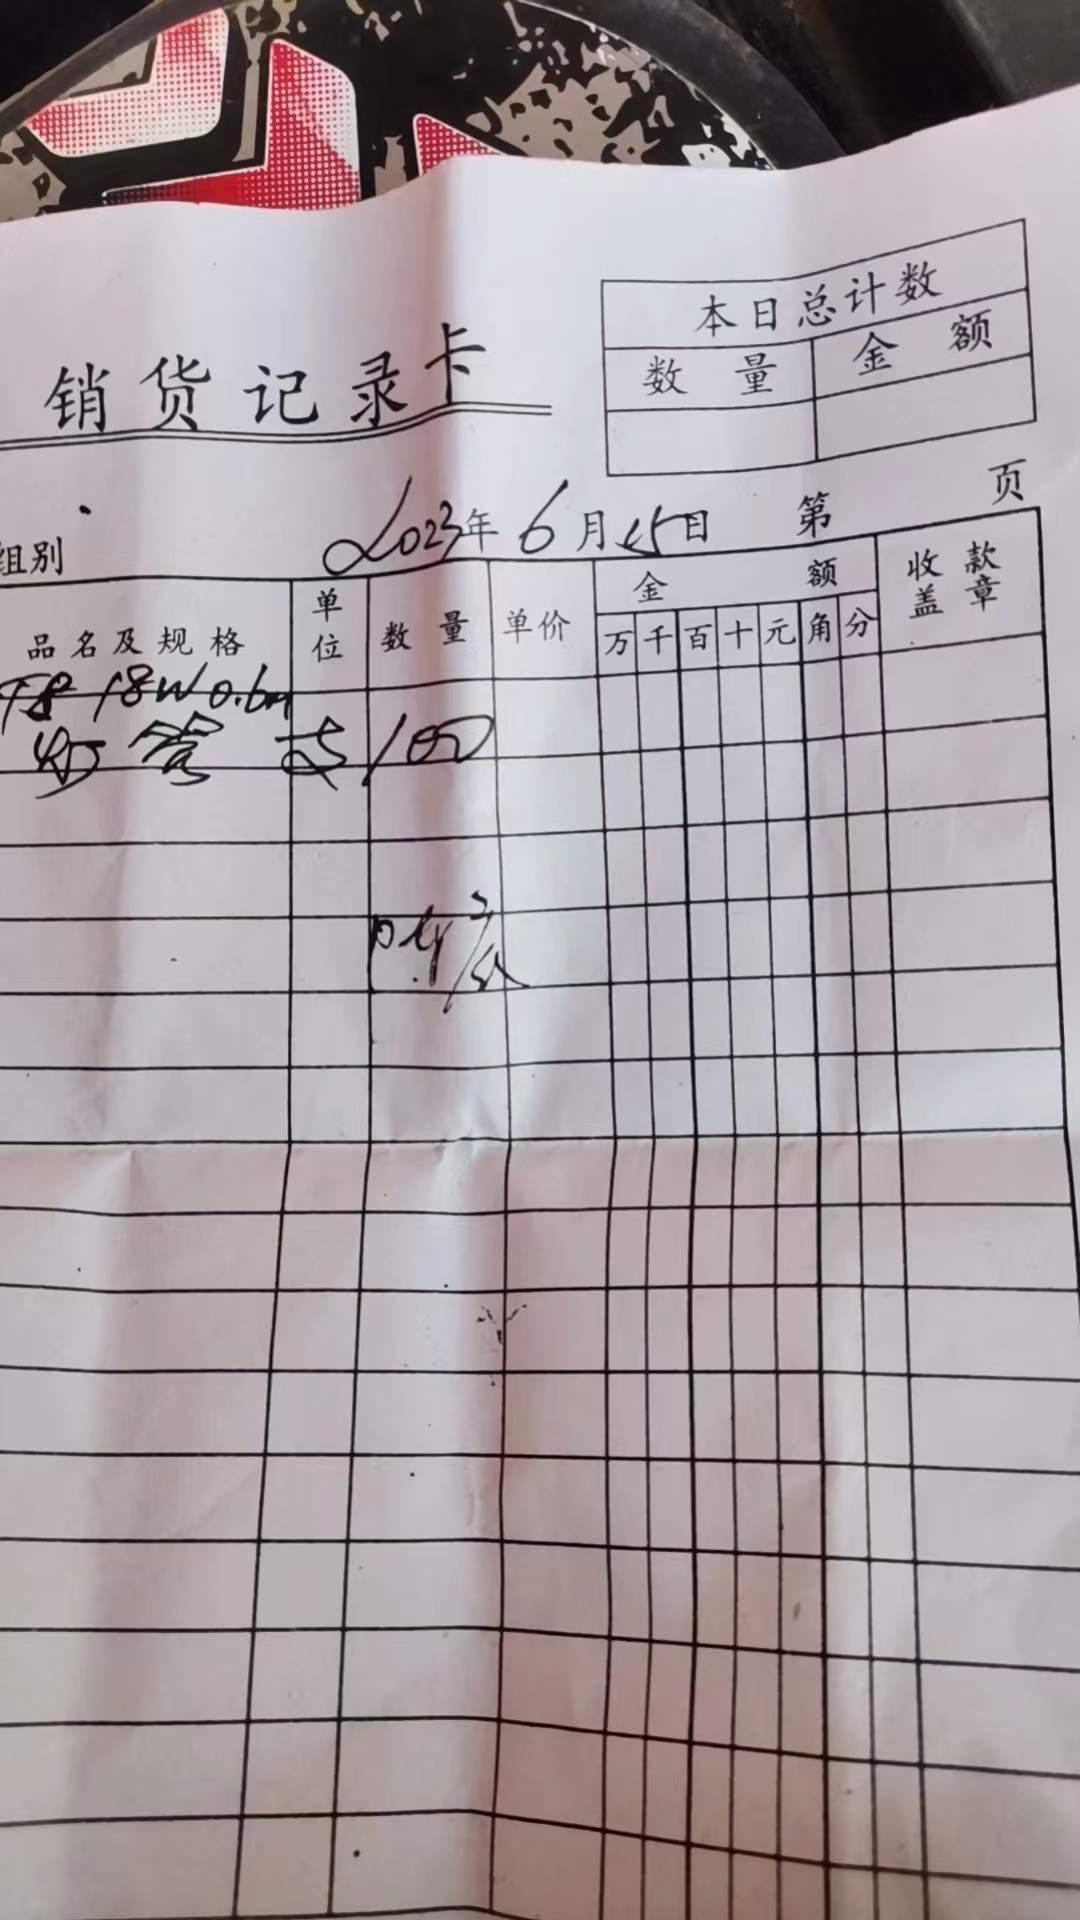 本日总计数
数量 金额
销货记录卡
组别 2023年6月25日 第 页
品名及规格 单位 数量 单价 金额 万 千 百 十 元 角 分 收款盖章
T8 18W 0.6m
灯管 支 100